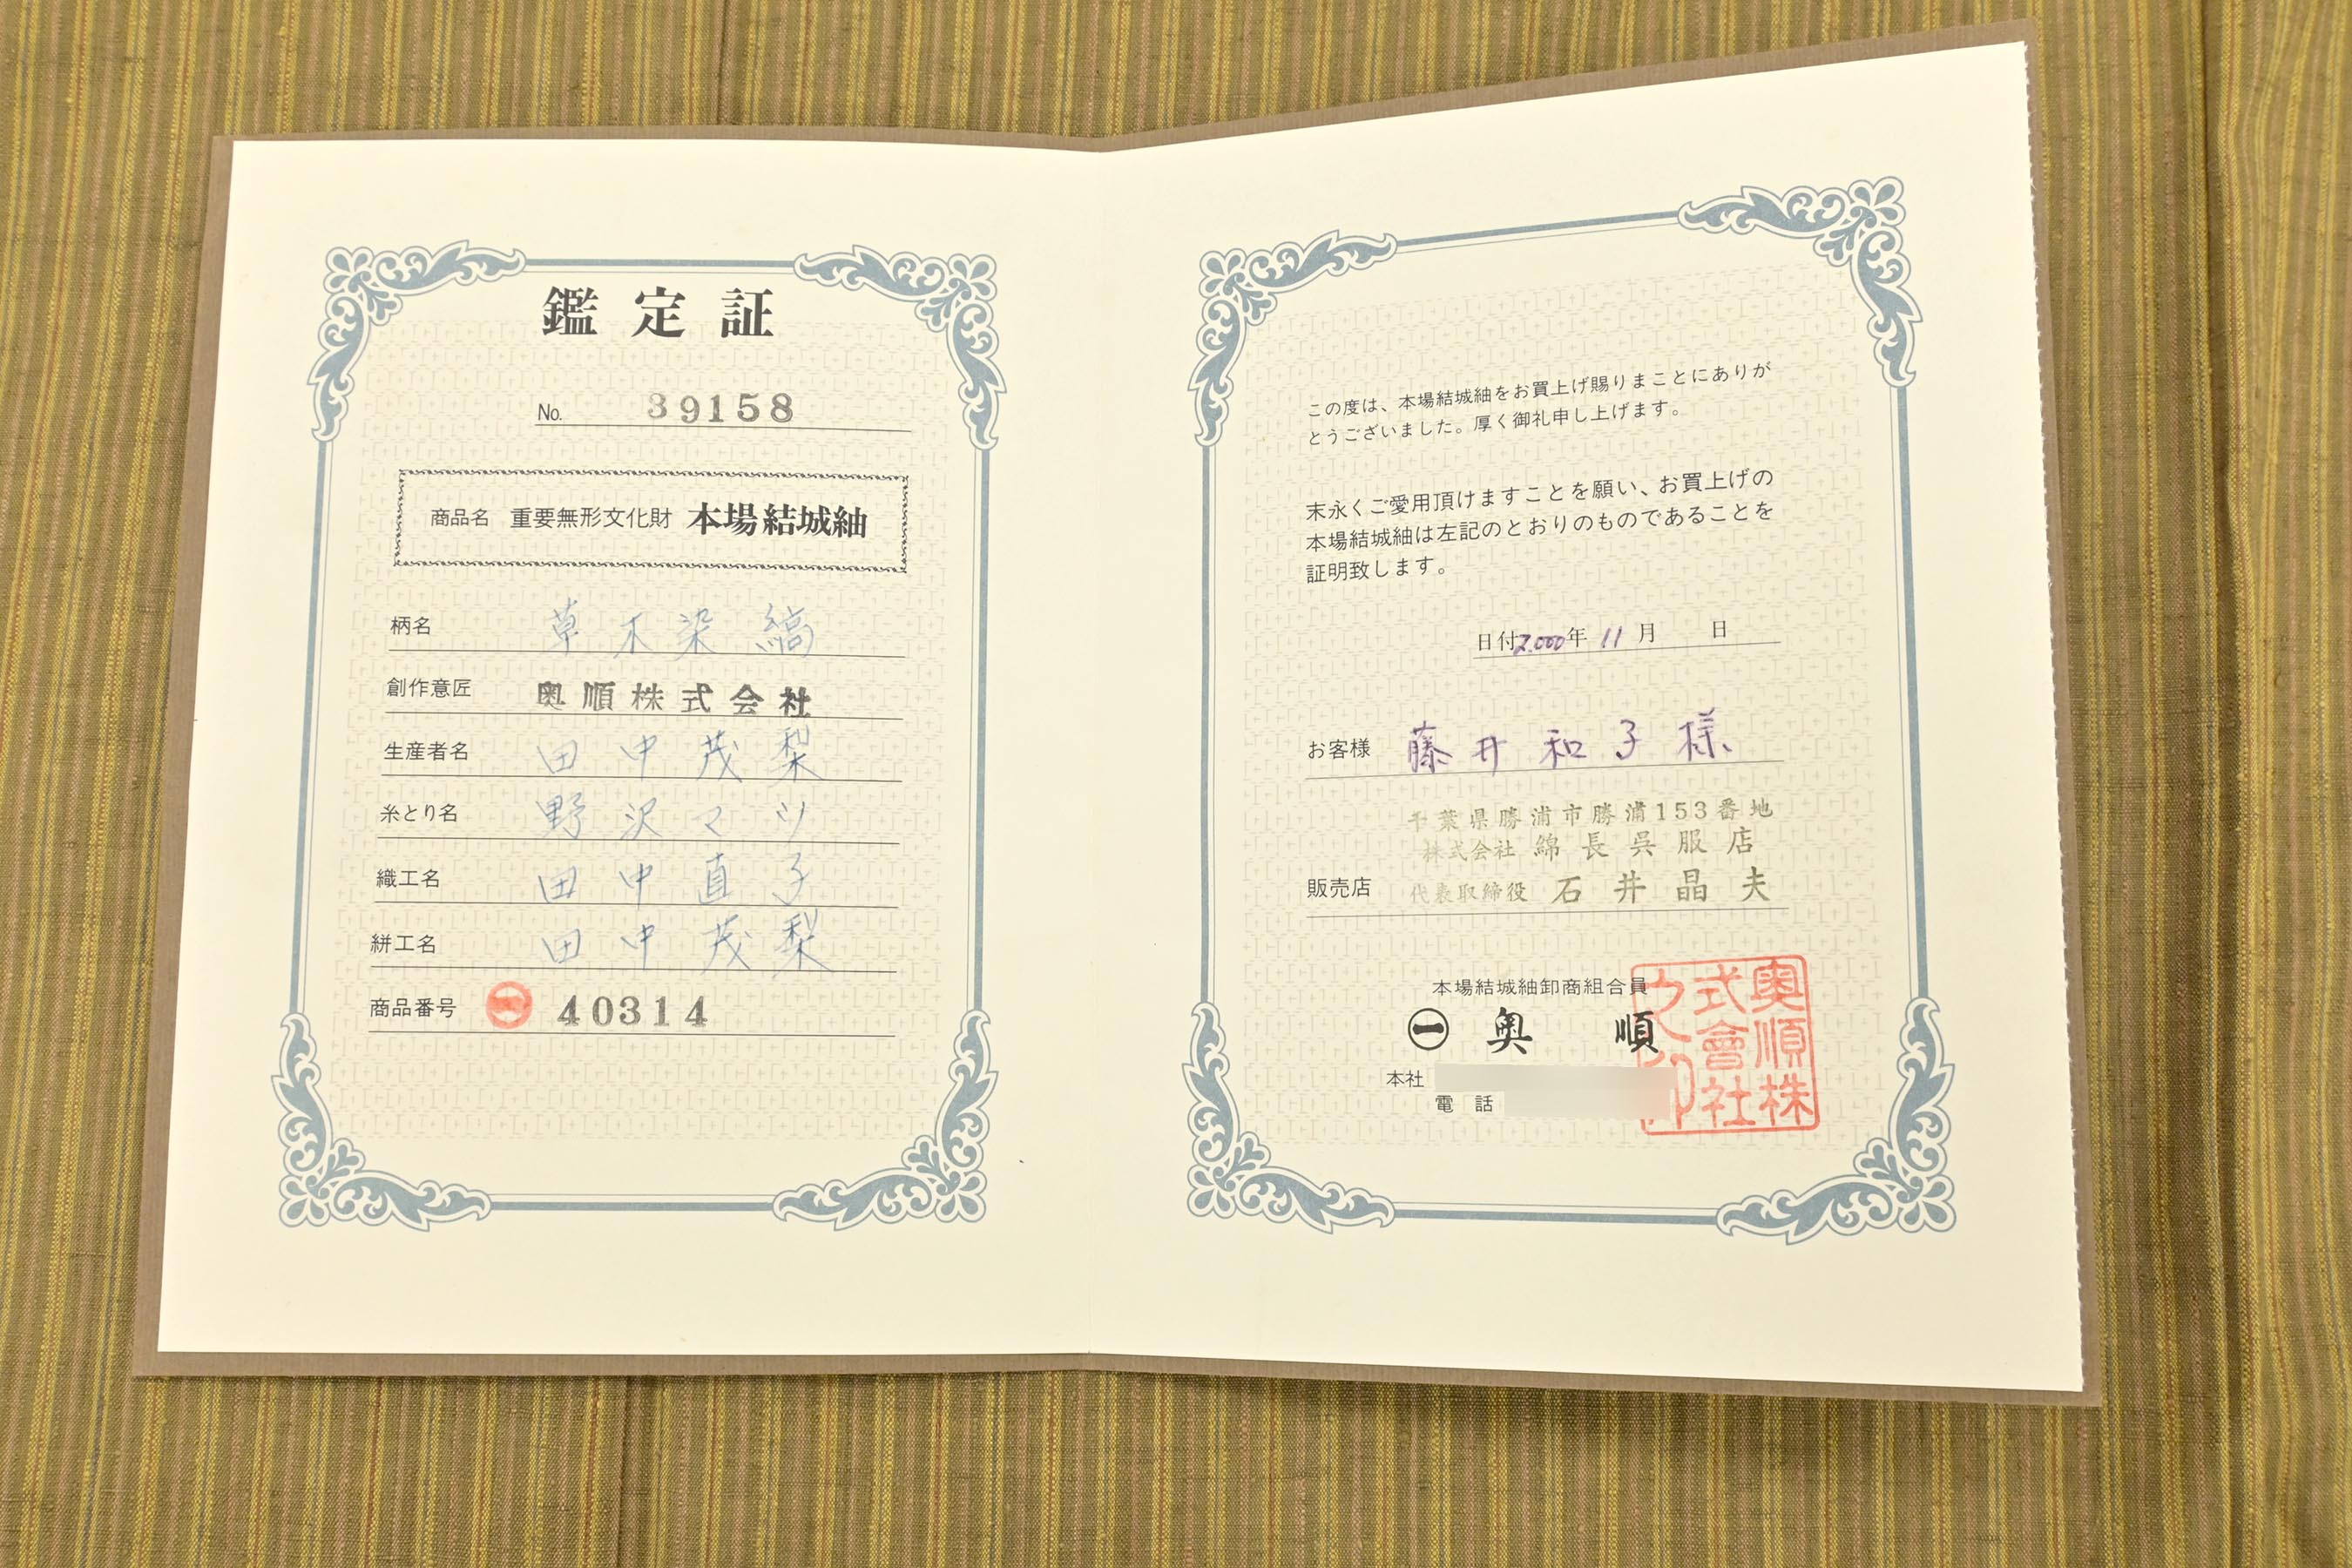 鑑定証
No. 39158
商品名 重要無形文化財 本場結城紬
柄名 草木染縞
創作意匠 奥順株式会社
生産者名 田中茂梨
糸とり名 野沢マツ
織工名 田中直子
絣工名 田中茂梨
商品番号 ㊀ 40314
この度は、本場結城紬をお買上げ賜りまことにありが
とうございました。厚く御礼申し上げます。
末永くご愛用頂けますことを願い、お買上げの
本場結城紬は左記のとおりのものであることを
証明致します。
日付2.000年 11月 日
お客様 藤井和子様
千葉県勝浦市勝浦153番地
株式会社 綿長呉服店
販売店 代表取締役 石井晶夫
本場結城紬卸商組合員
㊀ 奥順
本社
電話
奥順株式會社之印